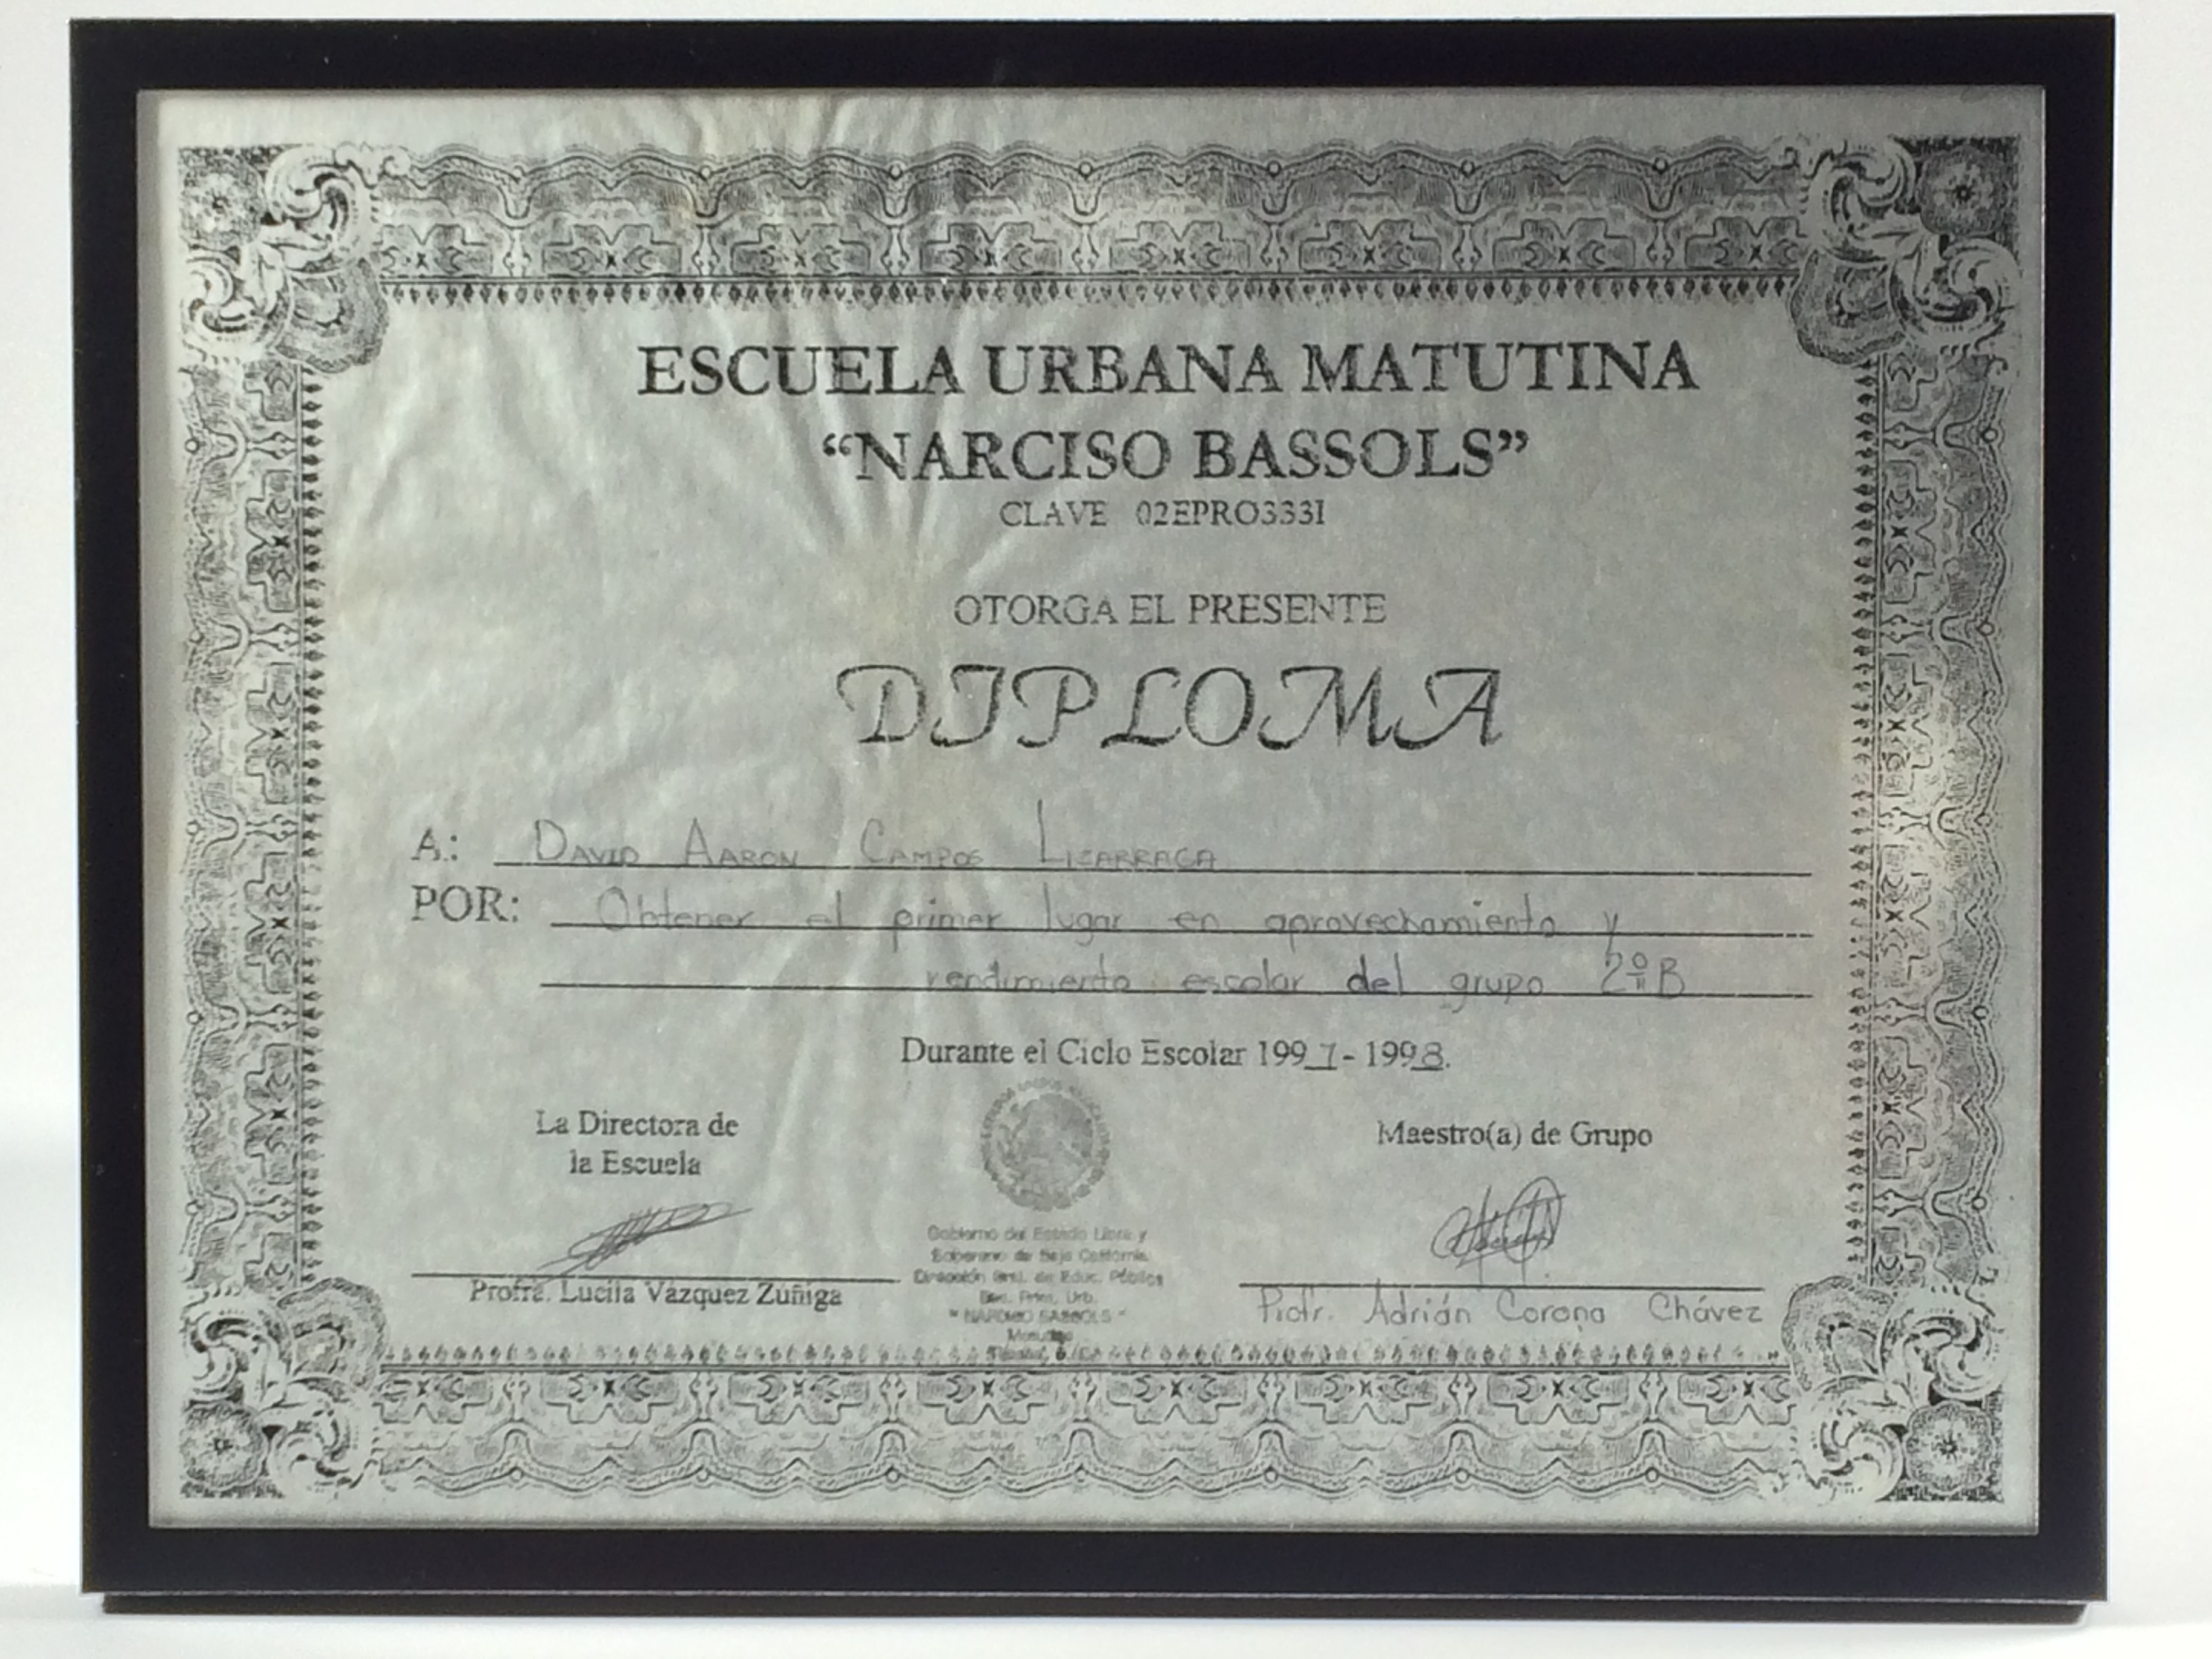 ESCUELA URBANA MATUTINA
“NARCISO BASSOLS”
CLAVE 02EPRO333I
OTORGA EL PRESENTE
DIPLOMA
A: DAVID AARON CAMPOS LIZARRAGA
POR: Obtener el primer lugar en aprovechamiento y
rendimiento escolar del grupo 2º B
Durante el Ciclo Escolar 1997-1998.
La Directora de
la Escuela
Maestro(a) de Grupo
Profra. Lucila Vázquez Zúñiga
Profr. Adrián Corona Chávez
Gobierno del Estado Libre y
Soberano de Baja California
Dirección Gral. de Educ. Pública
Esc. Prim. Urb.
" NARCISO BASSOLS "
Matutina